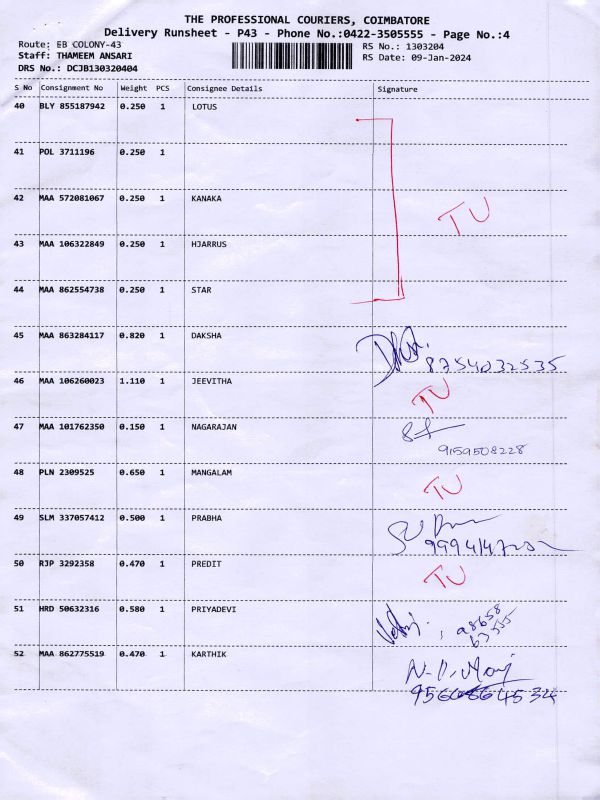 THE PROFESSIONAL COURIERS, COIMBATORE
Delivery Runsheet - P43 - Phone No.:0422-3505555 - Page No.:4
Route: EB COLONY-43 RS No.: 1303204
Staff: THAMEEM ANSARI RS Date: 09-Jan-2024
DRS No.: DCJB130320404
S No Consignment No Weight PCS Consignee Details Signature
40 BLY 855187942 0.250 1 LOTUS
41 POL 3711196 0.250 1
42 MAA 572081067 0.250 1 KANAKA
TU
43 MAA 106322849 0.250 1 HJARRUS
44 MAA 862554738 0.250 1 STAR
45 MAA 863284117 0.820 1 DAKSHA
8754032535
46 MAA 106260023 1.110 1 JEEVITHA TU
47 MAA 101762350 0.150 1 NAGARAJAN
9159508228
48 PLN 2309525 0.650 1 MANGALAM TU
49 SLM 337057412 0.500 1 PRABHA
50 RJP 3292358 0.470 1 PREDIT TU
51 HRD 50632316 0.580 1 PRIYADEVI
63555
52 MAA 862775519 0.470 1 KARTHIK